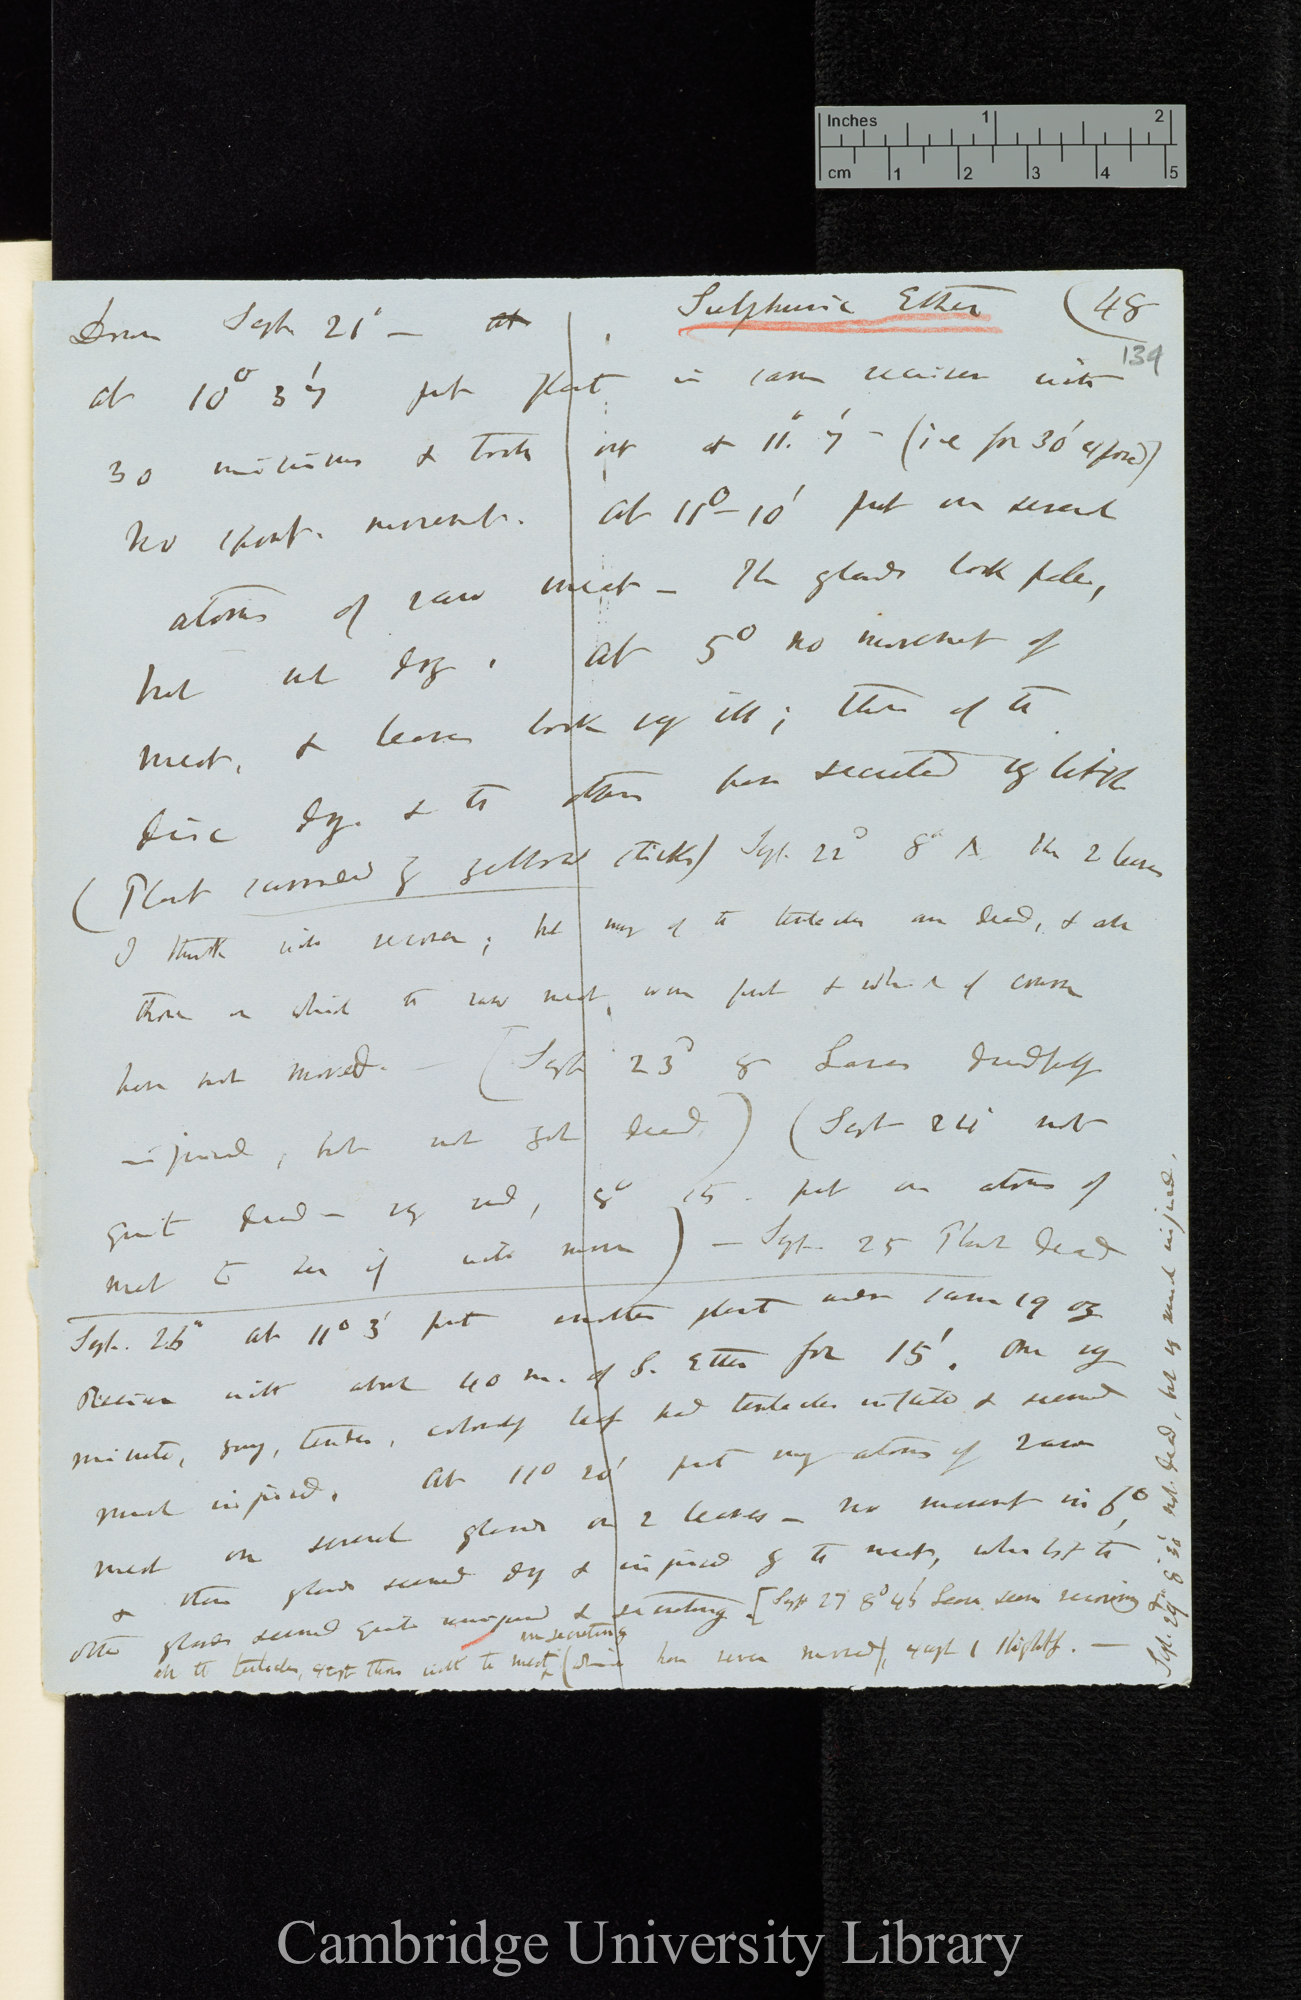 Inches 1 2
cm 1 2 3 4 5
Sulphuric Ether (48
139
Down Sept 21' — at
at 10° 37' put plant in same receiver with
30 minims & took out at 11° 7' — (i.e for 30' exposed)
No spont. movement. At 11°–10' put on several
atoms of raw meat — The glands look pale,
but not dry. At 5° no movement of
meat, & leaves look very ill; those of the
disc dry. & the others have secreted very little
(Plant surrounded by yellow sticks) Sept. 22° 8° The 2 leaves
I think will recover; but many of the tentacles are dead, & all
those on which the raw meat were put & which of course
have not moved. — (Sept 23° Leaves dreadfully
injured, but not quite dead) (Sept 24' not
quite dead — very red, 8° 15 . put on atoms of
meat to see if will move) — Sept. 25 Plant dead
Sept. 26° at 11° 3' put another plant under same 19 oz
Receiver with about 40 m. of S. Ether for 15'. One very
minute, young, tender, leaf had tentacles inflected & seemed
much injured. At 11° 20' put many atoms of raw
meat on several glands on 2 leaves — no movement in 6°,
& these glands seemed dry & injured by the meat, whilst the
other glands seemed quite uninjured & secreting. [Sept 27 8° 45' Leaves seem recovering
on secreting
all the tentacles, except those with the meat (which have never moved), except 1 slightly. —
Sept. 29th 8° 30' not dead, but very much injured.
Cambridge University Library